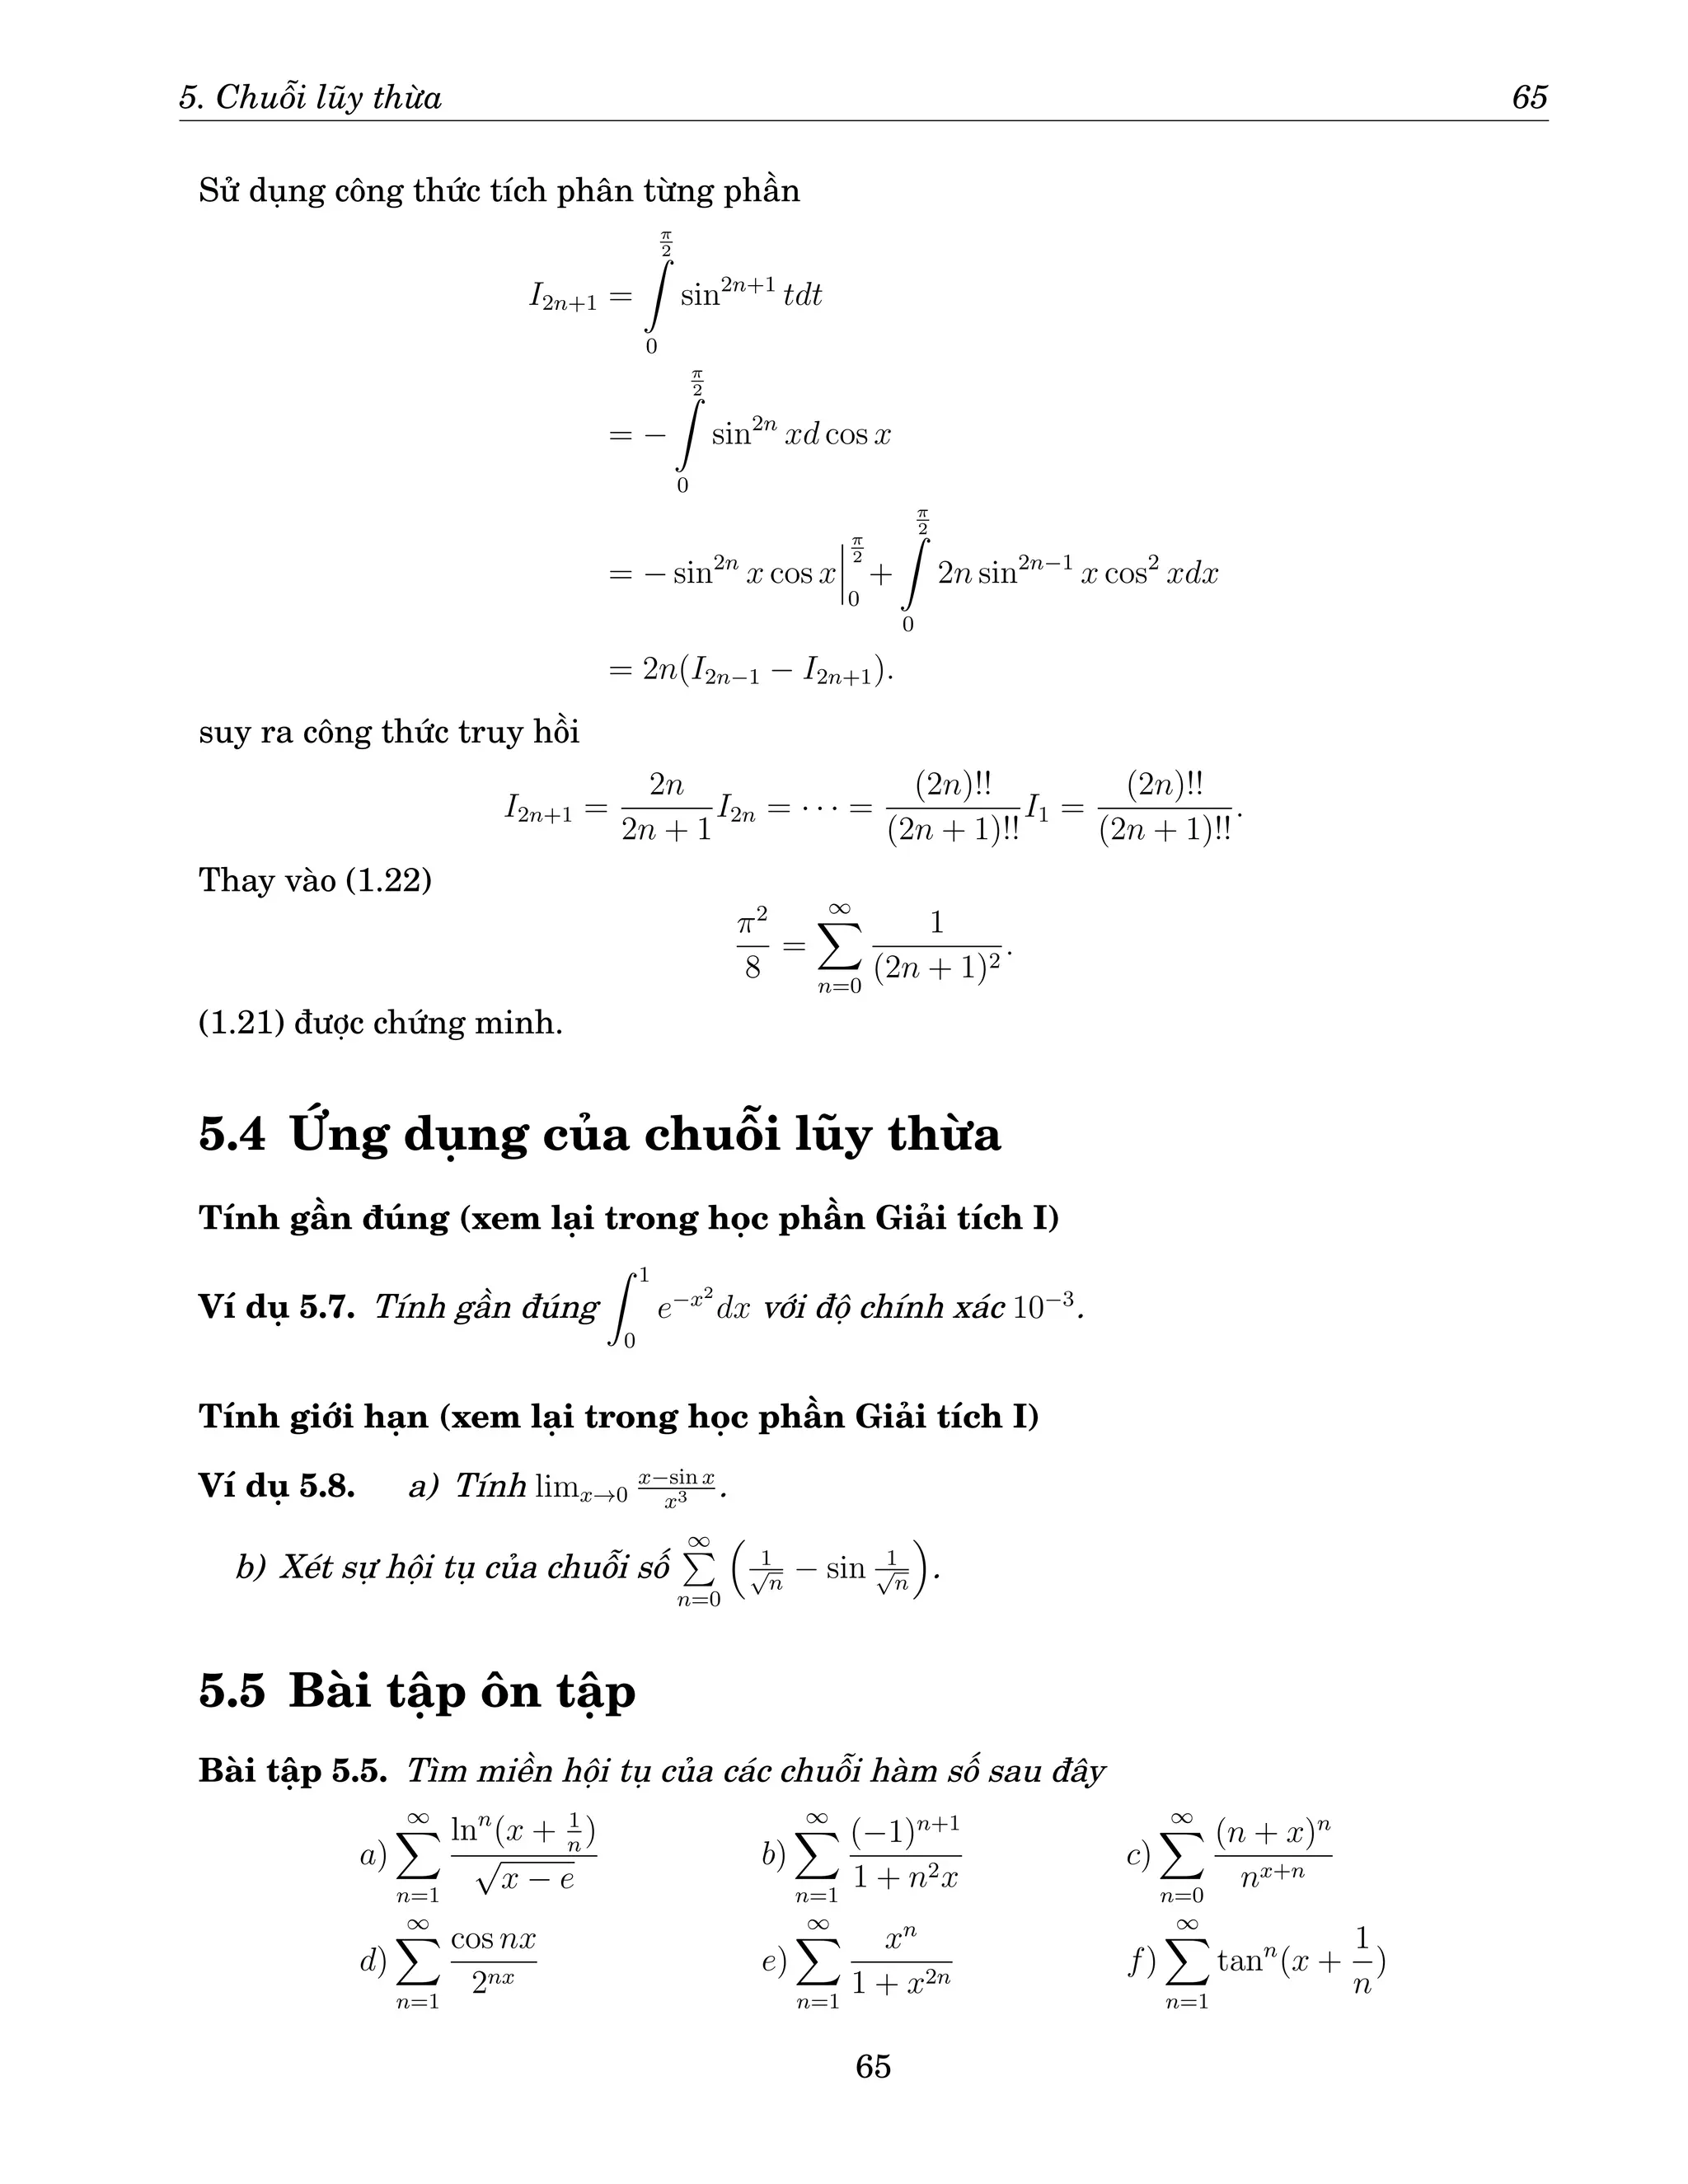 5. Chuỗi lũy thừa 65
Sử dụng công thức tích phân từng phần
$I_{2n+1} = \int\limits_0^{\frac{\pi}{2}} \sin^{2n+1} t dt$
$= -\int\limits_0^{\frac{\pi}{2}} \sin^{2n} x d\cos x$
$= -\sin^{2n} x \cos x \Big|_0^{\frac{\pi}{2}} + \int\limits_0^{\frac{\pi}{2}} 2n \sin^{2n-1} x \cos^2 x dx$
$= 2n(I_{2n-1} - I_{2n+1}).$
suy ra công thức truy hồi
$I_{2n+1} = \frac{2n}{2n+1} I_{2n} = \cdots = \frac{(2n)!!}{(2n+1)!!} I_1 = \frac{(2n)!!}{(2n+1)!!}.$
Thay vào (1.22)
$\frac{\pi^2}{8} = \sum_{n=0}^{\infty} \frac{1}{(2n+1)^2}.$
(1.21) được chứng minh.
5.4 Ứng dụng của chuỗi lũy thừa
Tính gần đúng (xem lại trong học phần Giải tích I)
Ví dụ 5.7. Tính gần đúng $\int_0^1 e^{-x^2} dx$ với độ chính xác $10^{-3}$.
Tính giới hạn (xem lại trong học phần Giải tích I)
Ví dụ 5.8. a) Tính $\lim_{x \to 0} \frac{x - \sin x}{x^3}$.
b) Xét sự hội tụ của chuỗi số $\sum\limits_{n=0}^{\infty} \left( \frac{1}{\sqrt{n}} - \sin \frac{1}{\sqrt{n}} \right)$.
5.5 Bài tập ôn tập
Bài tập 5.5. Tìm miền hội tụ của các chuỗi hàm số sau đây
a) $\sum_{n=1}^{\infty} \frac{\ln^n(x + \frac{1}{n})}{\sqrt{x - e}}$ b) $\sum_{n=1}^{\infty} \frac{(-1)^{n+1}}{1 + n^2 x}$ c) $\sum_{n=0}^{\infty} \frac{(n + x)^n}{n^{x+n}}$
d) $\sum_{n=1}^{\infty} \frac{\cos nx}{2^{nx}}$ e) $\sum_{n=1}^{\infty} \frac{x^n}{1 + x^{2n}}$ f) $\sum_{n=1}^{\infty} \tan^n(x + \frac{1}{n})$
65